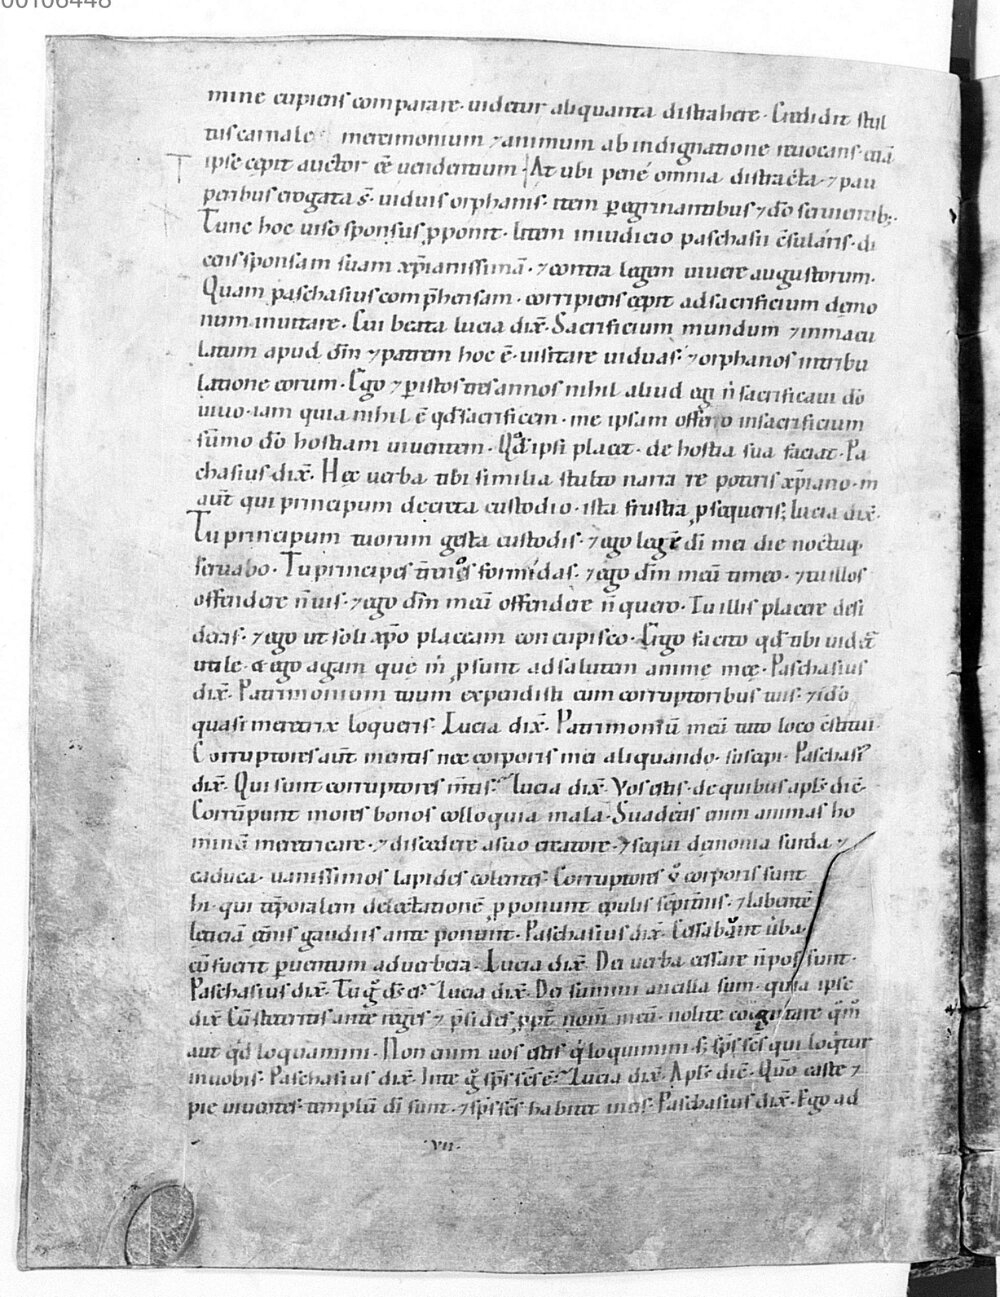 00106448
mine cupiens comparare· uidetur aliquanta distrahere· Credidit stul
tus carnale mercimonium ⁊ animum ab indignatione reuocans· etiā
ipse cepit auctor eē uendentium· At ubi pené omnia distracta· ⁊ pau
peribus erogata s̄· uiduis orphanis· item ꝑegrinantibus ⁊ dō seruientib;·
Tunc hoc uiso sponsus ꝓponit· litem in iudicio paschasii c̄sularis· di
cens sponsam suam xp̄ianissimā· ⁊ contra legem uiuere augustorum·
Quam paschasius comp̄hensam· corripiens cępit ad sacrificium demo
num inuitare· Cui beata lucia dix̄· Sacrificium mundum ⁊ inmacu
latum apud dm̄ ⁊ patrem hoc ē· uisitare uiduas· ⁊ orphanos in tribu
latione eorum· Ego ⁊ ꝑ istos tres annos nihil aliud egi n̄ sacrificaui dō
uiuo· iam quia nihil ē qd̄ sacrificem· me ipsam offero in sacrificium
sūmo dō hostiam uiuentem· Qd̄ ipsi placet· de hostia sua faciat· Pa
schasius dix̄· Hęc uerba tibi similia stulto narra re poteris xp̄iano· m̄
aūt qui principum decreta custodio· ista frustra ꝓsequeris; lucia dix̄·
Tu principum tuorum gesta custodis· ⁊ ego legē dī mei die noctuq
seruabo· Tu principes t̄renos formidas· ⁊ ego dm̄ meū timeo· ⁊ tu illos
offendere n̄ uis· ⁊ ego dm̄ meū offendere n̄ quero· Tu illis placere desi
deras· ⁊ ego ut soli xp̄o placeam concupisco· Ergo facito qd̄ tibi uidet̄
utile· & ego agam quę m̄ ꝓsunt ad salutem animę męę· Paschasius
dix̄· Patrimonium tuum expendisti cum corruptoribus tuis· ⁊ idō
quasi meretrix loqueris· Lucia dix̄· Patrimoniū meū tuto loco c̄stitui·
Corruptores aūt mentis nec corporis mei aliquando· suscepi· Paschasi
dix̄· Qui sunt corruptores m̄tis· Lucia dix̄· Vos estis· de quibus apls̄ dic̄·
Corrūpunt mores bonos colloquia mala· Suadetis enim animas ho
minū meretricare· ⁊ discedere a suo creatore· ⁊ sequi demonia surda ⁊
caduca· uanissimos lapides colentes· Corruptores ū corporis sunt
hi· qui tēporalem delectationē ꝓponunt epulis sēpitnis· ⁊ labentē
leticiā et̄nis gaudiis ante ponunt· Paschasius dix̄· Cessabunt ūba·
cū fuerit ꝑuentum ad uerbera· Lucia dix̄· Dei uerba cessare n̄ possunt·
Paschasius dix̄· Tu g̊ d̄s es· Lucia dix̄· Dei summi ancilla sum· quia ipse
dix̄ Cū steteritis ante reges ⁊ p̄sides ꝓpt̄ nom̄ meū· nolite cogitare qm̊
aut qd̄ loquamini· Non enim uos estis q̇ loquimini· s; sp̄s scs̄ qui loq̄tur
in uobis· Paschasius dix̄· In te g̊ sp̄s scs̄ ē· Lucia dix̄· Apls̄ dic̄· Qm̄ caste ⁊
pie uiuentes· templū dī sunt· ⁊ sp̄s scs̄ habitat in eis· Paschasius dix̄· Ego ad
·VII·